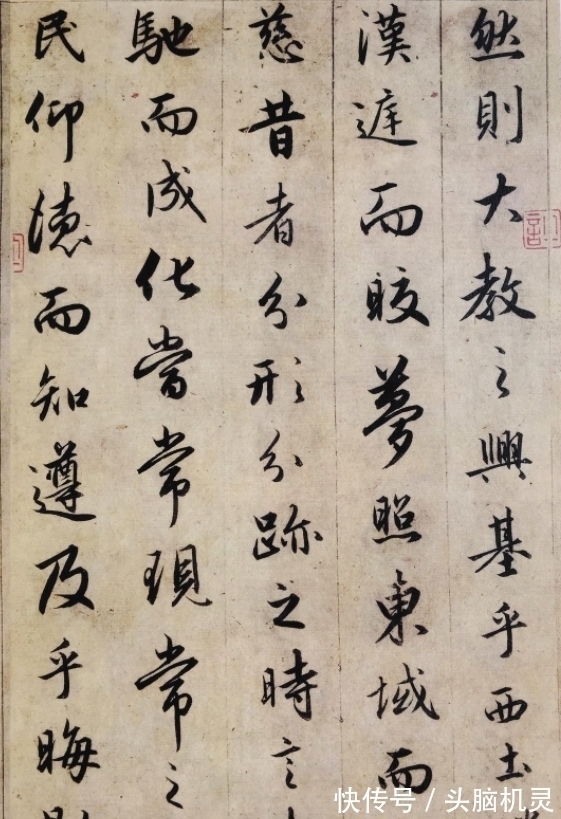 然則大教之興基乎西土
漢庭而皎夢照東域而
慈昔者分形分跡之時言
馳而成化當常現常之
民仰德而知遵及乎晦
快传号 / 头脑机灵